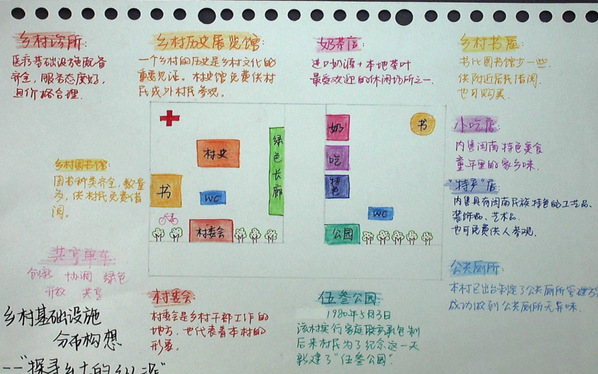 乡村诊所:
医疗基础设施配备
齐全,服务态度好,
且价格合理.
乡村历史展览馆:
一个乡村的历史是乡村文化的
重要见证。本史馆免费供村
民或外村民参观.
奶茶店:
进口奶源+本地茶叶
最受欢迎的休闲场所之一
乡村书屋
书比图书馆少一些.
供附近居民借阅.
也可购买
小吃店:
内售闽南特色美食
童年里的家乡味.
"特产"店:
内售具有闽南民族特色的工艺品、
装饰品、艺术品.
也可免费供人参观.
公共厕所:
本村已出台制定了公共厕所管理
成功做到公共厕所无异味.
乡村图书馆
图书种类齐全,数量
多,供村民免费借
阅.
共享单车:
创新 协调 绿色
开放 共享
村史
绿色长廊
奶
吃
书
书
WC
WC
村委会
公园
村委会:
村委会是乡村干部工作的
地方,也代表着本村的
形象.
伍叁公园:
1980年5月3日
该村实行家庭联产承包制
后来村民为了纪念这一天
新建了"伍叁公园".
乡村基础设施
分布构想
--"探寻乡土的